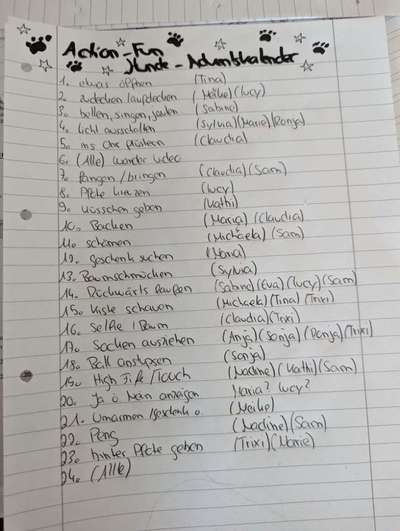 Action-Fun
Hunde-Adventskalender
1. etwas öffnen (Tina)
2. zudecken/aufdecken (Maike)(Lucy)
3. bellen, singen, (Sabine)
4. Licht ausschalten (Sylvia)(Marie)(Ronja)
5. ins Ohr flüstern (Claudia)
6. (Alle) wander video
7. fangen/bringen (Claudia)(Sam)
8. Pfote (Lucy)
9. Küsschen geben (Kathi)
10. Backen (Maria)(Claudia)
11. schämen (Michaela)(Sam)
12. Geschenk suchen (Nora)
13. Baumschmücken (Sylvia)
14. Rückwärts laufen (Sabine)(Eva)(Lucy)(Sam)
15. Kiste schauen (Michaela)(Tina)(Trixi)
16. Selfie / Baum (Claudia)(Trixi)
17. Socken ausziehen (Anja)(Sonja)(Ronja)(Trixi)
18. Ball anstupsen (Sonja)
19. High Five/Touch (Nadine)(Kathi)(Sam)
20. Ja o Nein anzeigen Maria? Lucy?
21. Umarmen/Geschenk o. (Maike)
22. Peng (Nadine)(Sam)
23. hinter Pfote geben (Trixi)(Marie)
24. (Alle)